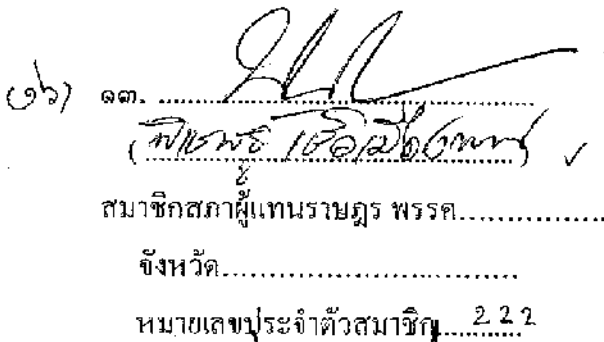 (๑๖) ๑๓. ....................
(พิเชษฐ์ เชื้อเมืองพาน) ✓
สมาชิกสภาผู้แทนราษฎร พรรค....................
จังหวัด....................
หมายเลขประจำตัวสมาชิก........222